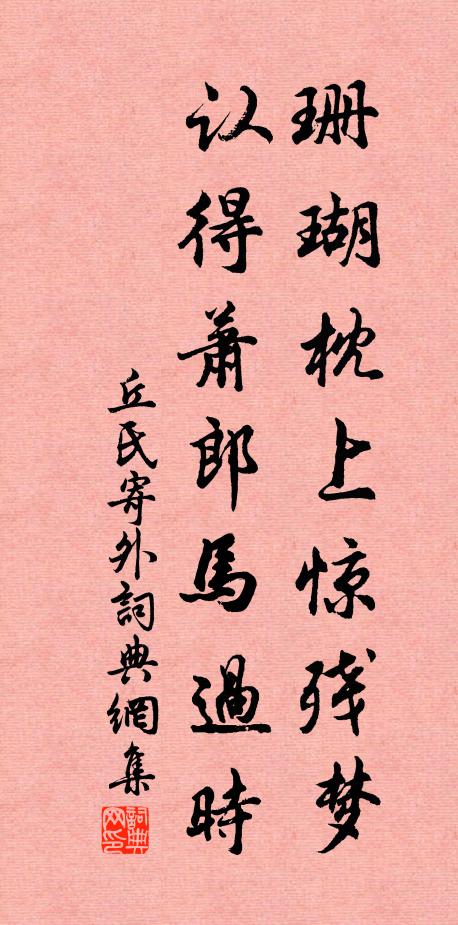 珊瑚枕上惊残梦
认得萧郎馬過時
丘氏寄外詞典網集
詞典网印